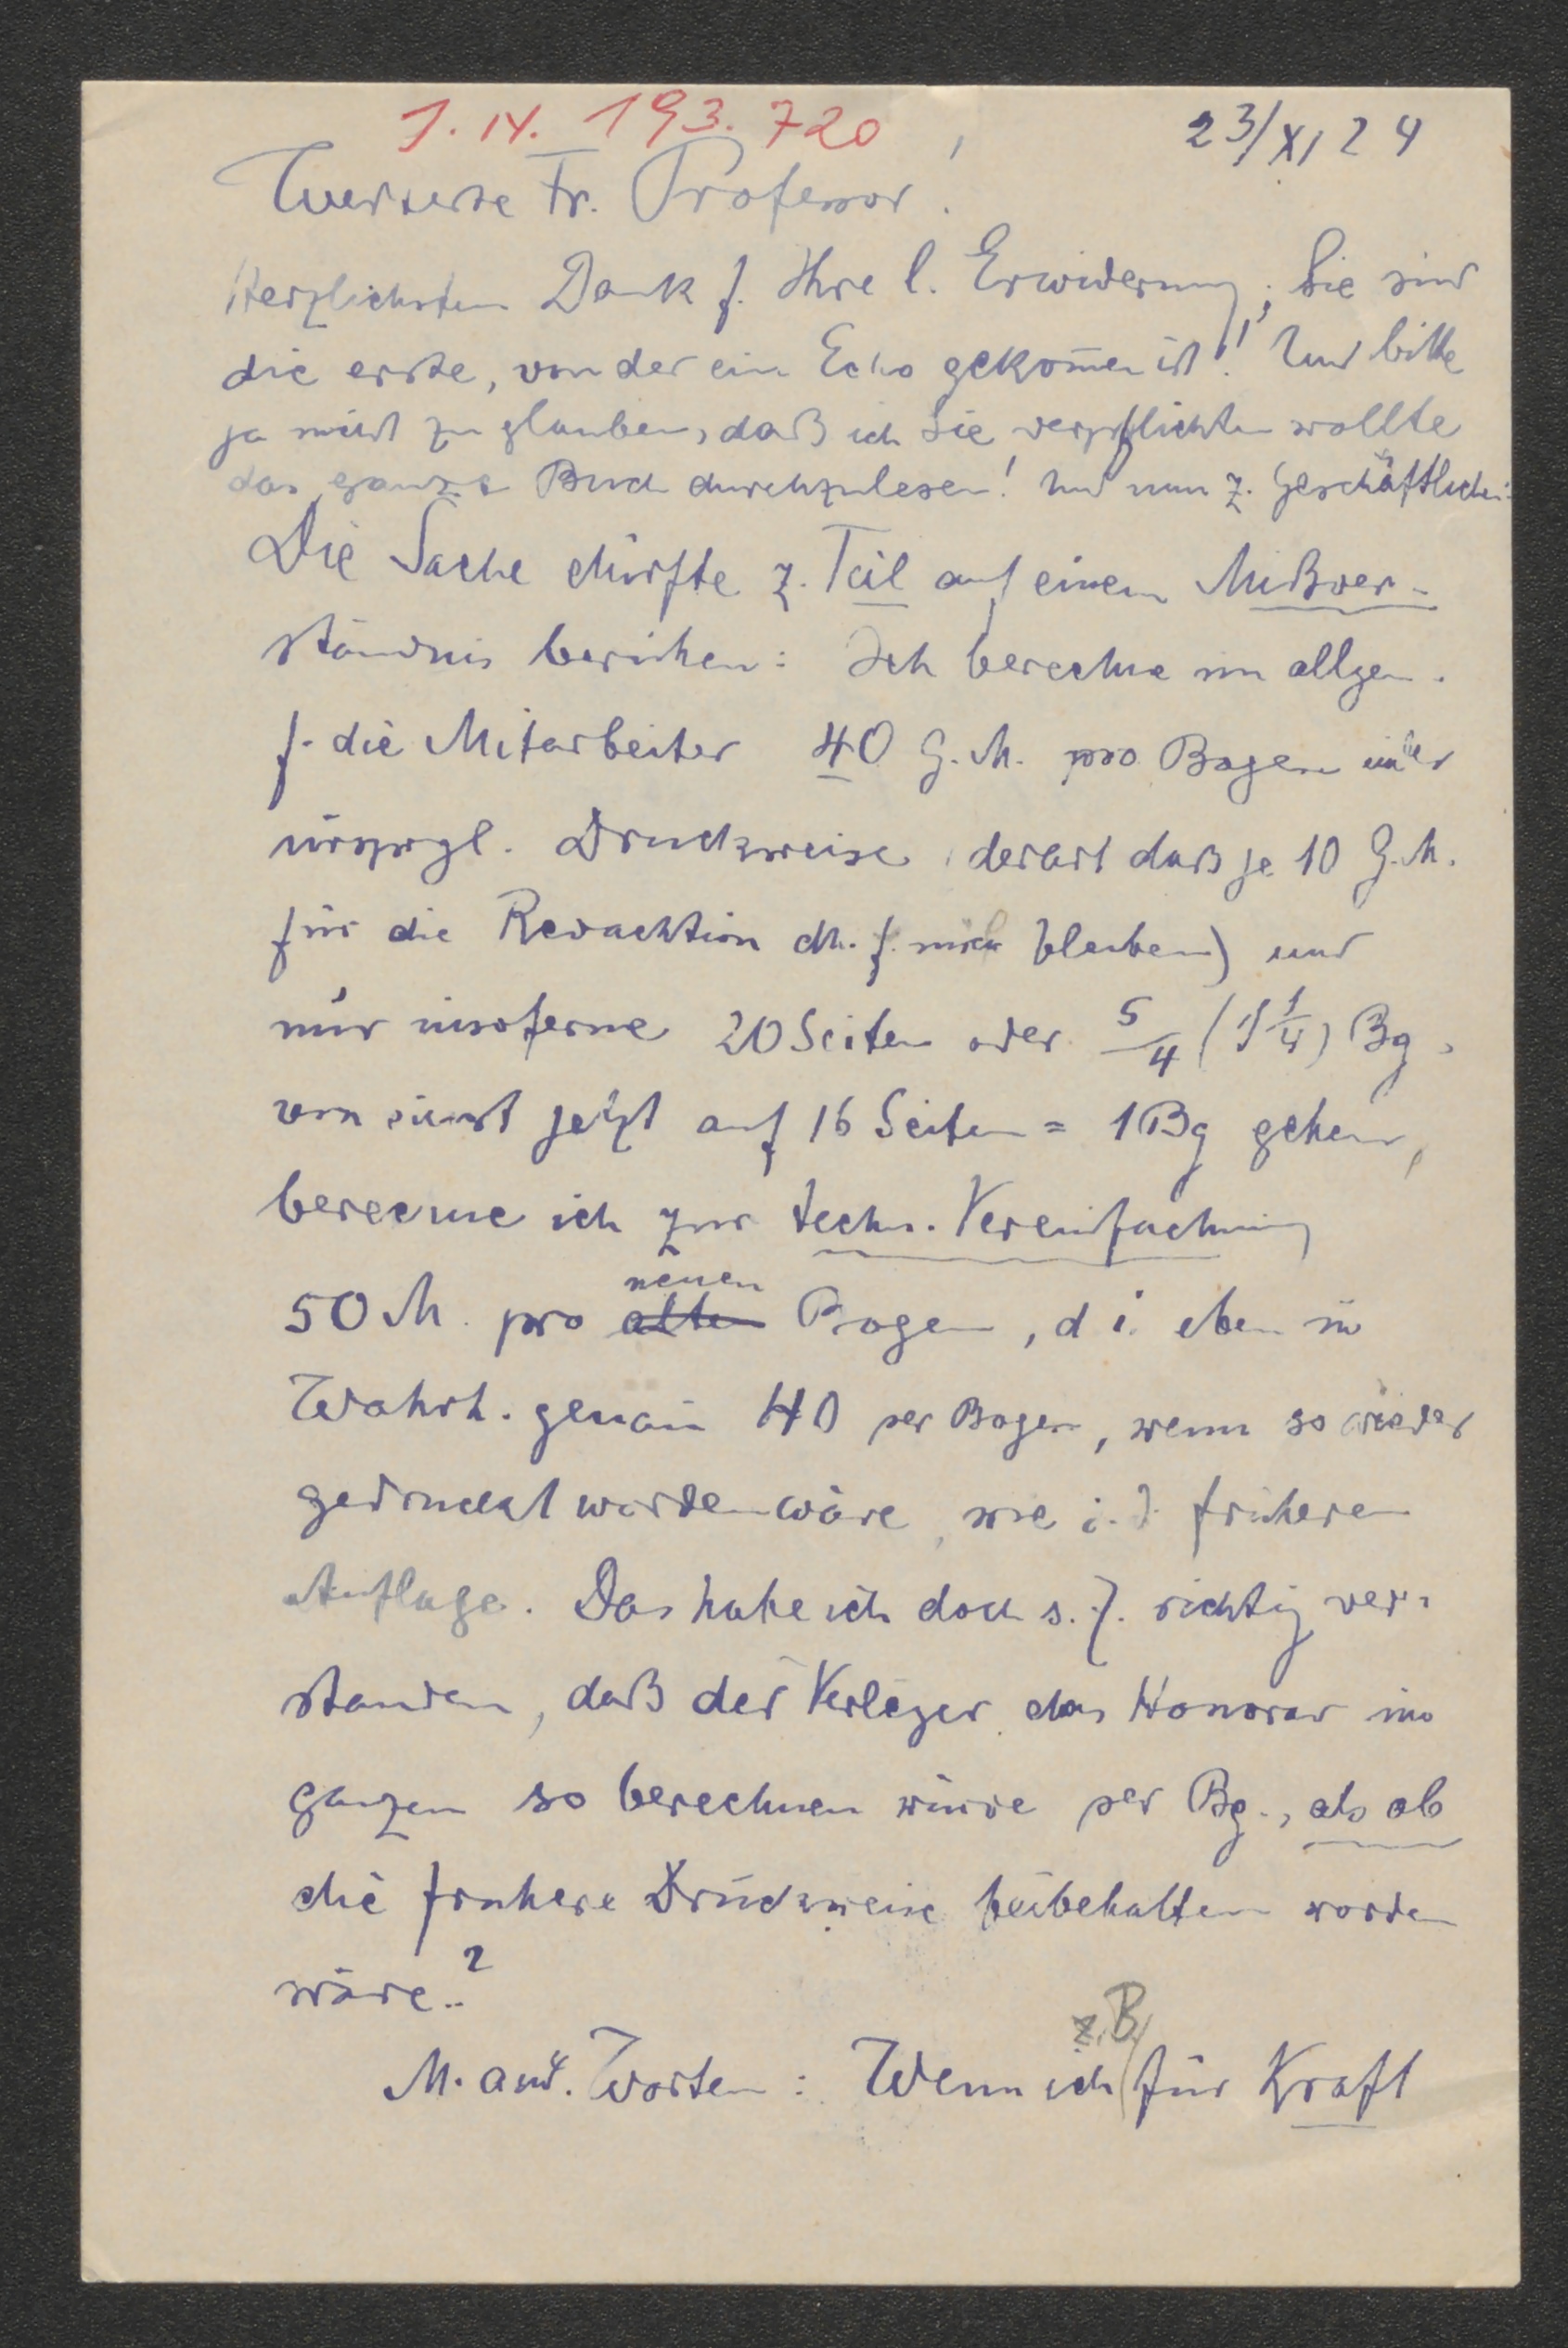 J. N. 193.720
23/XI 24
Werteste Fr. Professor!
Herzlichsten Dank f. Ihre l. Erwiderung; Sie sind
die erste, von der ein Echo gekom̅en ist! Und bitte
ja nicht zu glauben, daß ich Sie verpflichten wollte
das ganze Buch durchzulesen! Und nun z. Geschäftlichen:
Die Sache dürfte z. Teil auf einem Mißver-
ständnis beruhen: Ich berechne im allgem.
f. die Mitarbeiter 40 G. M. pro Bogen in der
ursprgl. Druckweise derart daß je 10 G. M.
für die Redacktion dh. f. mich bleiben) und
nur insoferne 20 Seiten oder 5/4 (1 1/4) Bg.
von einst jetzt auf 16 Seiten = 1 Bg gehen,
berechne ich zur techn. Vereinfachung
neuen
50 M. pro alten Bogen, d i. eben in
Wahrh. genau 40 per Bogen, wenn so wieder
gedruckt worden wäre, wie i. d. früheren
Auflage. Das habe ich doch s. Z. richtig ver-
standen, daß der Verleger das Honorar im
ganzen so berechnen würde per Bg., als ob
die frühere Druckweise beibehalten worden
wäre..?
z. B.
M. and. Worten: Wenn ich für Kraft